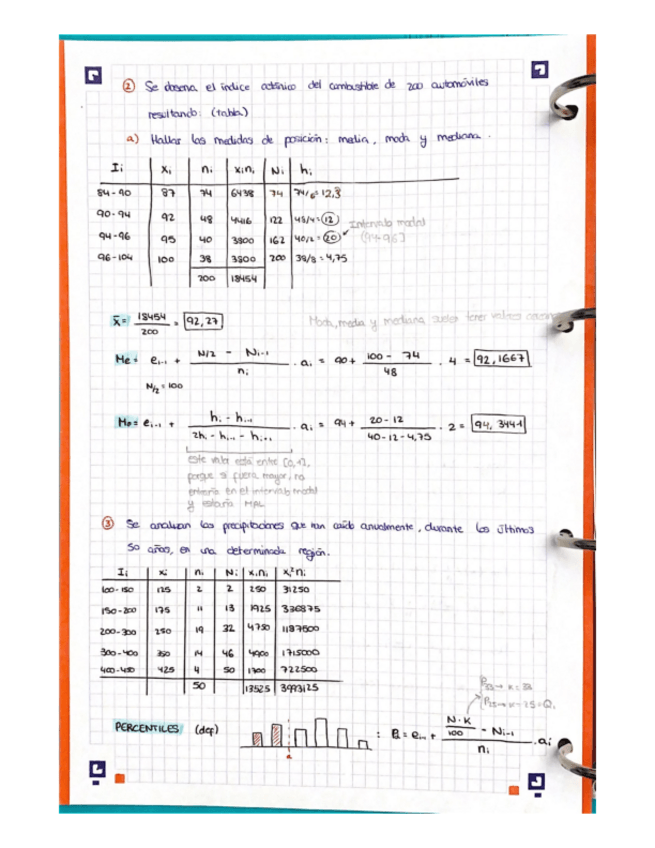 ② Se observa el índice octánico del combustible de 200 automóviles
resultando: (tabla)
a) Hallar las medidas de posición: media, moda y mediana.
Ii xi ni xini Ni hi
84-90 87 74 6438 74 74/6=12,3
90-94 92 48 4416 122 48/4=12
94-96 95 40 3800 162 40/2=20
Intervalo modal
(94-96]
96-104 100 38 3800 200 38/8=4,75
200 18454
x̄= 18454/200 = 92,27
Moda, media y mediana suelen tener valores
Me= ei-1 + (N/2 - Ni-1)/ni · ai = 90+ (100-74)/48 · 4 = 92,1667
N/2=100
Mo= ei-1 + (hi-hi-1)/(2hi-hi-1-hi+1) · ai = 94+ (20-12)/(40-12-4,75) · 2 = 94,3441
este valor está entre [0,1],
porque si fuera mayor, no
entraría en el intervalo modal
y estaría MAL.
③ Se analizan las precipitaciones que han caído anualmente, durante los últimos
50 años, en una determinada región.
Ii xi ni Ni xini xi²ni
100-150 125 2 2 250 31250
150-200 175 11 13 1925 336875
200-300 250 19 32 4750 1187500
300-400 350 14 46 4900 1715000
400-450 425 4 50 1700 722500
50 13525 3993125
P33→ K=33
P25→ K=25=Q1
PERCENTILES (def) : Pk= ei-1 + (N·K/100 - Ni-1)/ni · ai